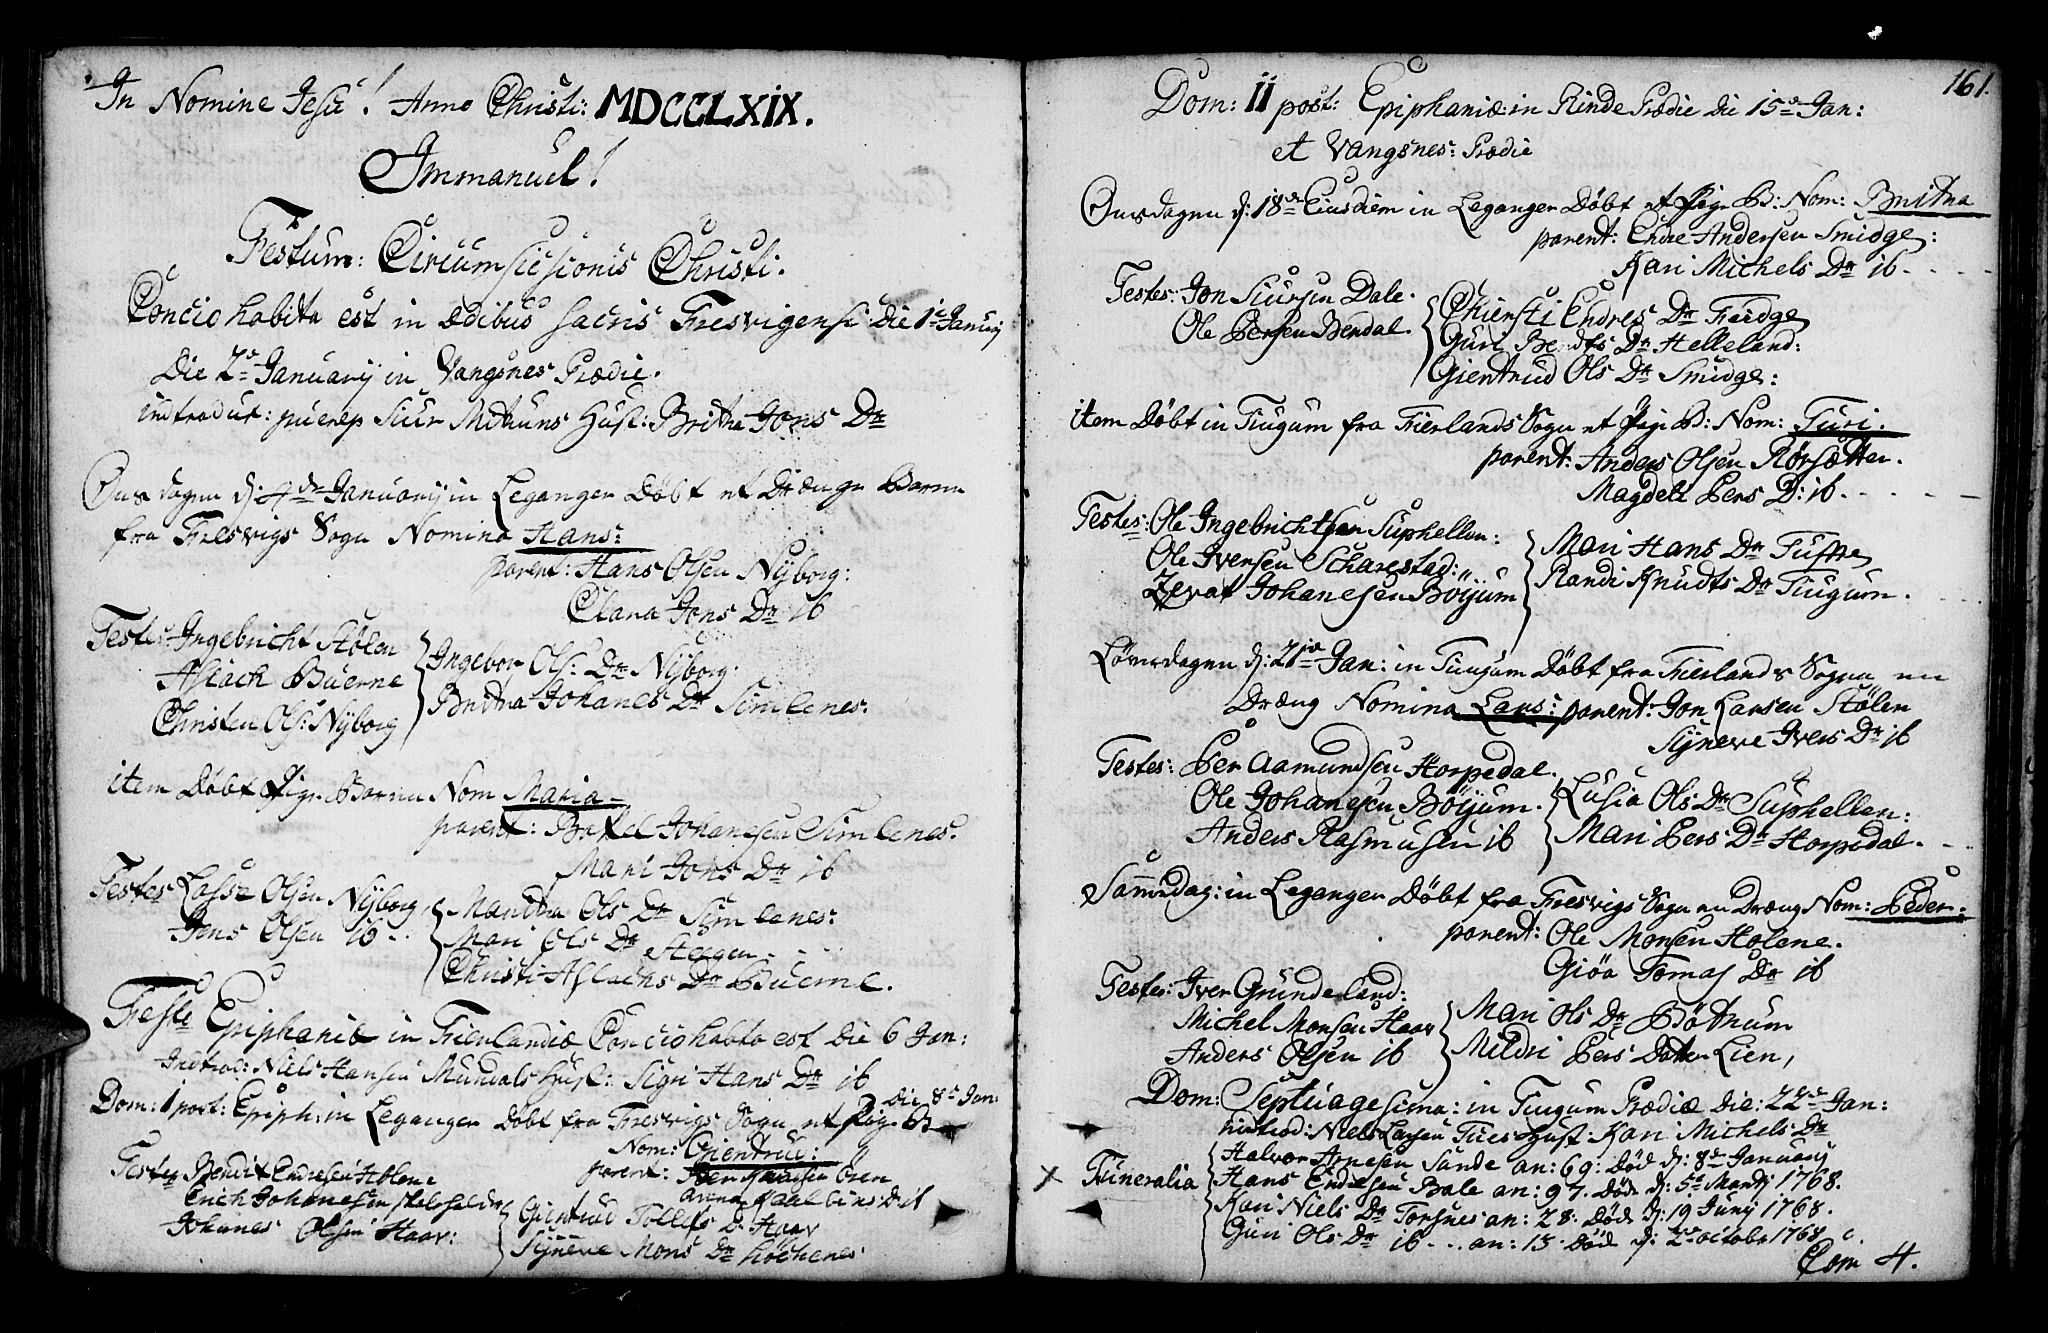 In Nomine Jesu! Anno Christi: MDCCLXIX.
Immanuel!
Festum: Circumscisionis Christi.
Concio habita est in ædibus sacris Fresvigensi Die 1e Januarij
Die 2e Januarij in Vangsnes Prædie.
introduc: puerep Siur Mithuns Hust: Britha Jons Dr
Onsdagen d: 4de Januarij in Leganger Døbt et Drænge Barn
fra Fresvigs Sogn Nomina Hans:
parent: Hans Olsen Nyborg:
Clara Jons Dr ib
Testes: Ingebricht Stølen
Aslach Buerne
Christen Ols: Nyborg
Ingebor Ols: Dr Nyborg.
Britha Johanes Dr Simlenes.
item Døbt Pige Barn Nom Maria
parent: Botel Johanesen Simlenes.
Mari Jons Dr ib
Testes Lasse Olsen Nyborg
Jens Olsen ib
Maritha Ols Dr Simlenes:
Mari Ols Dr Heggen
Christi Aslachs Dr Buerne.
Festo Epiphaniæ in Fierlandiæ Concio habta est Die 6 Jan:
Introd: Niels Hansen Mundals Hust: Sigri Hans Dr ib
Dom: 1 post: Epiph: in Leganger Døbt fra Fresvigs Sogn et Pige B Die 8de Jan:
Nom: Gientrue:
parent: Hansen
Anna
Testes Bendit Endresen Holene
Erich Johanesen Skelsholde
Johanes Olsen Haav:
Gientrud Tollefs D: Haav
Synneve Mons Dr Høchenes
161.
Dom: II post: Epiphaniæ in Rinde Prædie Die 15de Jan:
et Vangsnes: Prædie
Onsdagen d: 18de Eiusdiem in Leganger Døbt et Pige B: Nom: Britha
parent: Endre Andersen Smidge:
Kari Michels Dr ib
Testes: Jon Siursen Dale.
Ole Persen Bendal.
Chiersti Endres Dr Feidge
Guri Bendts Dr Helleland:
Gientrud Ols Dr Smidge:
item Døbt in Tiugum fra Fierlands Sogn et Pige B: Nom: Turi.
parent: Anders Olsen Rørsætter.
Magdeli Pers D: ib
Testes: Ole Ingebrichtsen Suphellen:
Ole Iversen Scharestad:
Zevat Johanesen Bøijum
Mari Hans Dr Tuffte
Randi Knudts Dr Tiugum.
Løverdagen d: 21de Jan: in Tiugum Døbt fra Fierlands Sogn en
Dræng Nomina Lars: parent: Jon Larsen Stølen
Synneve Ivers Dr ib
Testes: Per Aamundsen Horpedal.
Ole Johanesen Bøijum.
Anders Rasmusen ib
Lusia Ols Dr Suphellen:
Mari Pers Dr Horpedal.
Sammedag: in Leganger Døbt fra Fresvigs Sogn en Dræng Nom: Peder.
parent: Ole Monsen Holene.
Giøa Tomas Dr ib
Testes: Iver Grunderland:
Michel Monsen Haav
Anders Olsen ib
Mari Ols Dr Bøtnum
Mildri Pers Datter Lien,
Dom: Septuagesima: in Tiugum Prædie Die: 22de Jan:
introd: Niels Larsen Hust: Kari Michels Dr
Funeralia
Halvor Arnesen Sande an: 69: Død d: 8de Januarij
Hans Endresen Bale an: 97. Død d: 5te Martij 1768.
Kari Niels Dr Torsnes an: 28. Død d: 19 Junij 1768.
Guri Ols Dr ib an: 15 Død d: 2de octobr 1768
Dom 4.